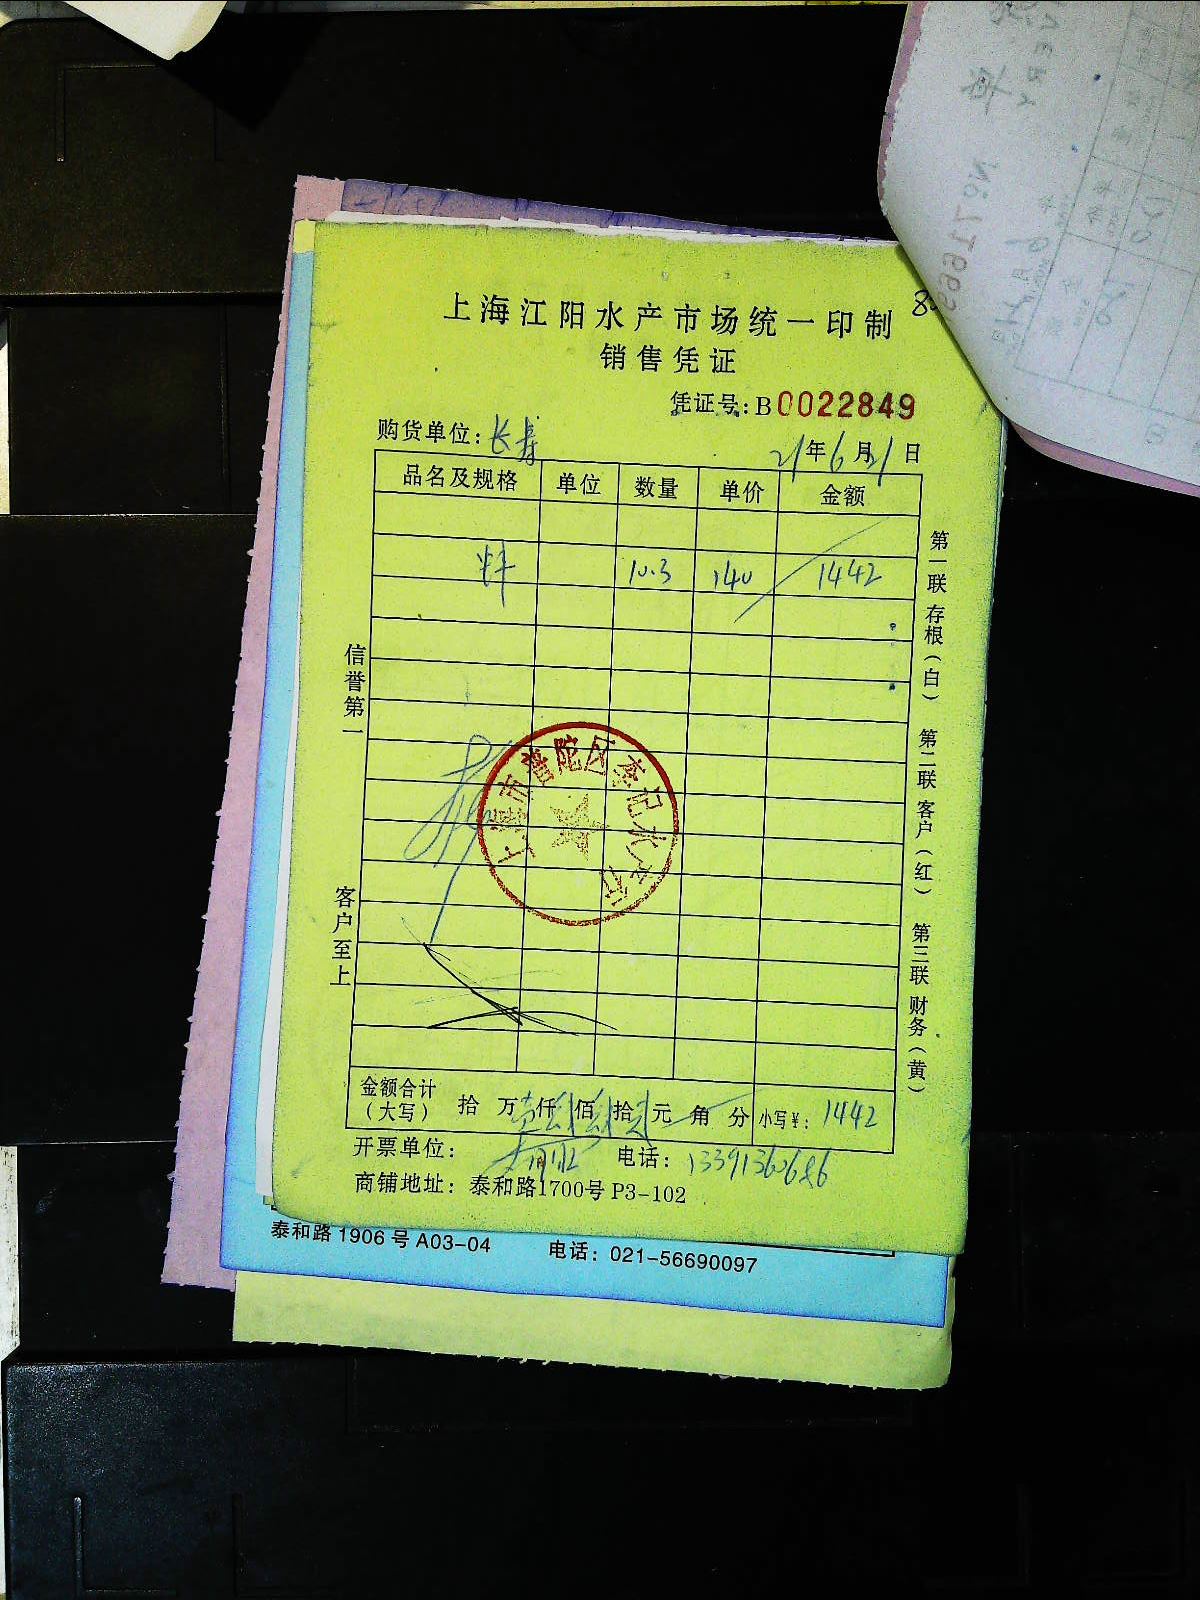 上海江阳水产市场统一印制
销售凭证
凭证号：B0022849
购货单位：长寿
21年6月21日
品名及规格 单位 数量 单价 金额
10.3 140 1442
信誉第一
客户至上
第一联 存根（白）
第二联 客户（红）
第三联 财务（黄）
上海市普陀区李记水产行
金额合计（大写） 拾 万 仟 佰 拾 元 角 分 小写￥：1442
开票单位： 电话：13391360686
商铺地址：泰和路1700号 P3-102
泰和路 1906 号 A03-04 电话：021-56690097